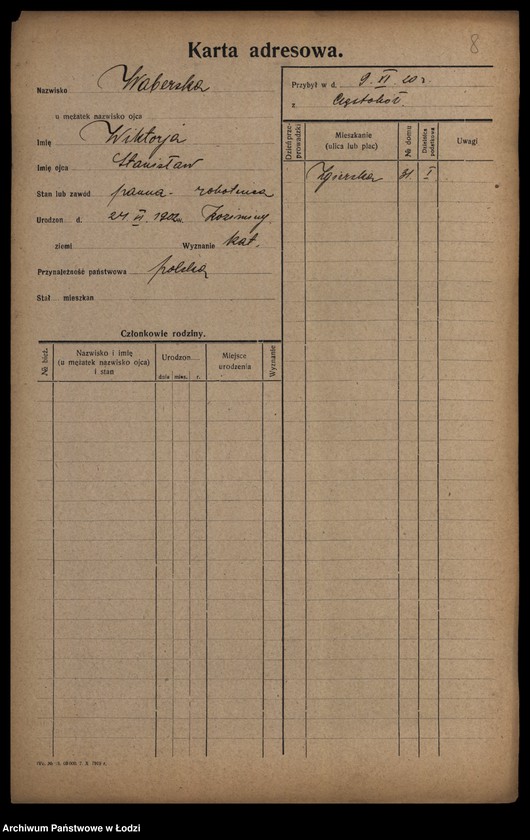 8
Karta adresowa.
Nazwisko Waberska
u mężatek nazwisko ojca
Imię Wiktorja
Imię ojca Stanisław
Stan lub zawód panna - robotnica
Urodzon d. 24 VI 1902 r.
ziemi Wyznanie kat.
Przynależność państwowa polska
Stał mieszkan
Przybył w d. 9 VI 20 r
z
Dzień przeprowadzki
Mieszkanie
(ulica lub plac)
№ domu
Dzielnica podatkowa
Uwagi
Zgierska 31. I
Członkowie rodziny.
№ bież.
Nazwisko i imię
(u mężatek nazwisko ojca)
i stan
Urodzon
dnia mies. r.
Miejsce
urodzenia
Wyznanie
Archiwum Państwowe w Łodzi